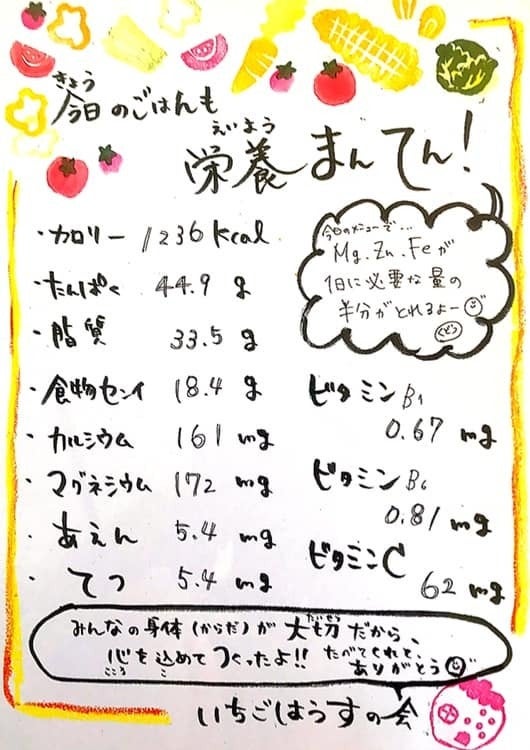 きょう
今日のごはんも
えいよう
栄養まんてん!
今日のメニューで...
Mg.Zn.Feが
1日に必要な量の
半分がとれるよー
くどう
・カロリー 1236kcal
・たんぱく 44.9 g
・脂質 33.5 g
・食物センイ 18.4 g
・カルシウム 161 mg
・マグネシウム 172 mg
・あえん 5.4 mg
・てつ 5.4 mg
ビタミンB1
0.67 mg
ビタミンB6
0.81 mg
ビタミンC
62 mg
みんなの身体(からだ)が大切だから、
たいせつ
心を込めてつくったよ!!
こころ こ
たべてくれて、
ありがとう
いちごはうすの会